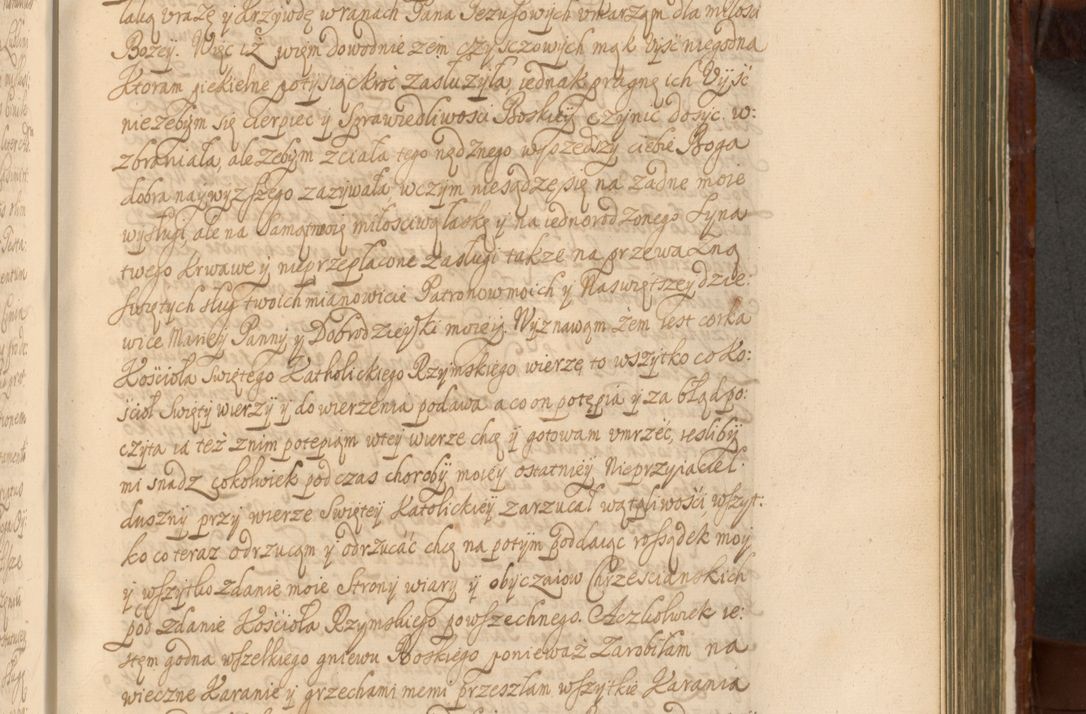 taką vrazę y krzywdę wranach Pana Jezusowych vmarzam dla miłosci
Bozeÿ. Więc iż wiem dowodnie zem czysczowych mąk vÿsc niegodna
Ktoram piekielne potysiąckroc zasłuzyła, iednak pragnę ich Vÿsc
niezebÿm się cierpiec ÿ Sprawiedliwosci Boskieÿ czynic dosyc w:
zbraniała, ale zebÿm zciała tego nędznego wÿszedszÿ ciebie Boga
dobra naywyzszego zazywała, wczym niesądzę się na zadne moie
wysługi, ale na Samą twoię miłosciwą łaskę y na iednorodzonego Syna
twego krwawe y nieprzepłacone zasługi także na przewazną
Swiętych sług twoich mianowicie Patronow moich y Naswiętszey dzie:
wice Marieÿ Panny y Dobrodzieÿki moieÿ. Wÿznawam żem iest corka
Kościoła Swiętego Katholickiego Rzÿmskiego wierzę to wszytko co Ko:
ścioł Swięty wierzÿ ÿ do wierzenia podawa a co on potępia y za błąd po:
czÿta ia też znim potępiam wteÿ wierze chcę ÿ gotowam vmrzec, iesliby
mi snadz cokolwiek podczas chorobÿ moieÿ ostatnieÿ Nieprzyiaciel
dusznÿ przÿ wierze Swięteÿ Katolickieÿ zarzucał wątpliwości wszÿt:
ko co teraz odrzucam y odrzucać chcę na potÿm poddaiąc rossądek moÿ
ÿ wszÿtko zdanie moie Strony wiary ÿ obÿczaiow Chrzescianskich
pod zdanie Kościoła Rzymskiego powszechnego. Aczkolwiek ie:
stęm godna wszelkiego gniewu Boskiego ponieważ zarobiłam na
wieczne Karanie ÿ grzechami memi przeszłam wszÿtkie Karania